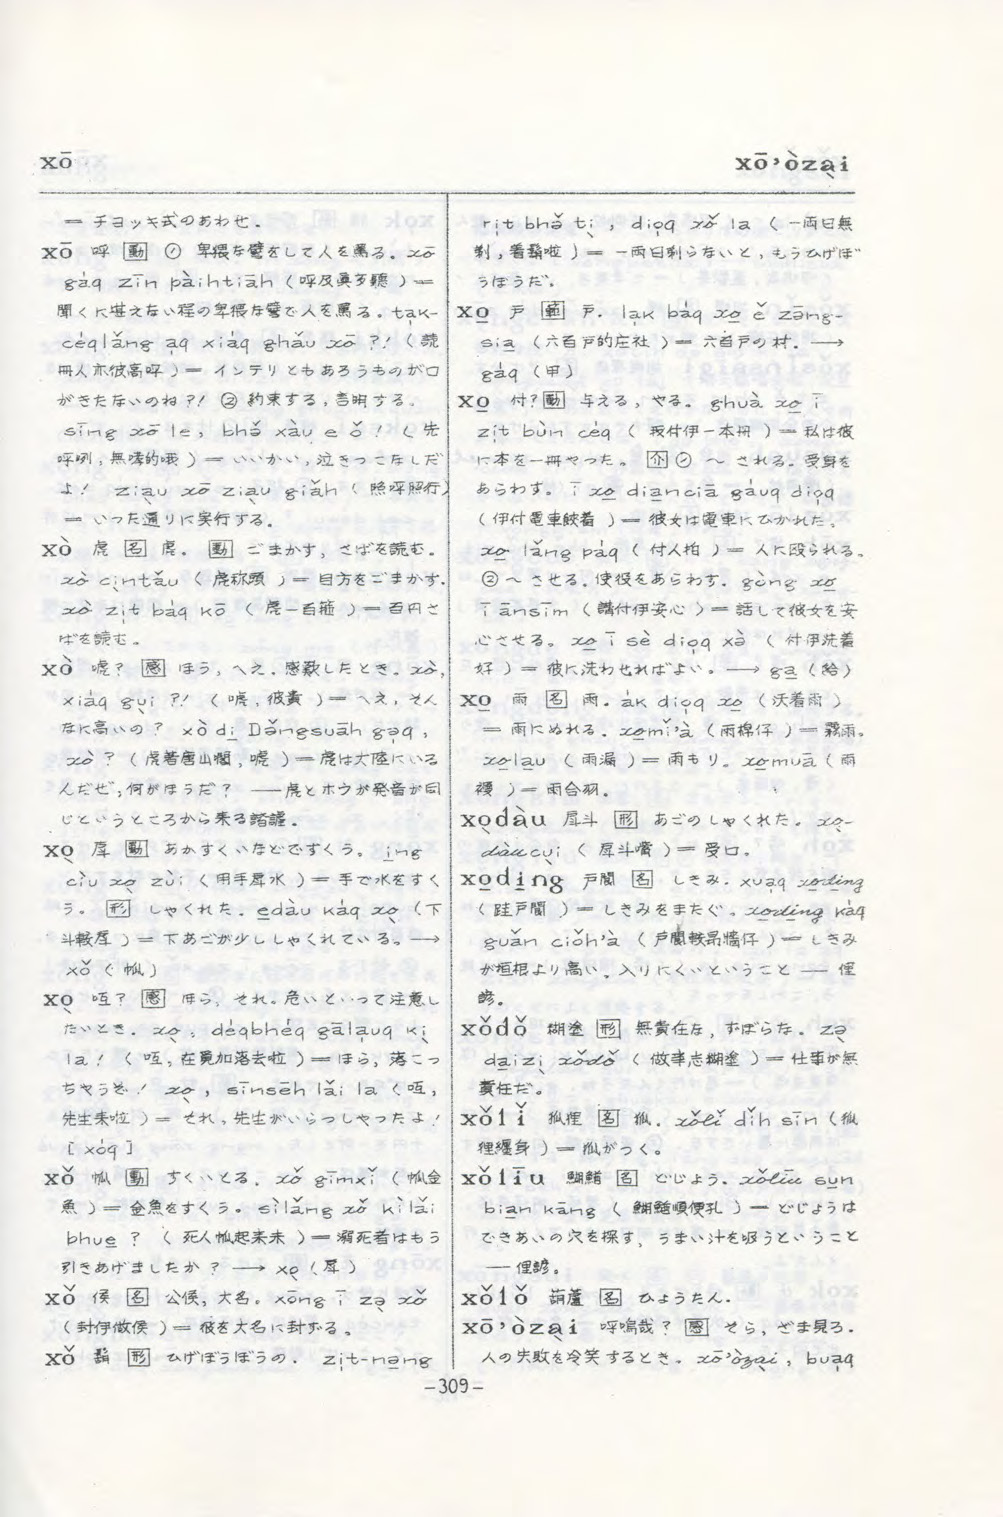 xō
xō’òzại
= チョッキ式のあわせ.
xō 呼 [動] ① 卑猥な声をして人を罵る. xō
gáq zīn pàihtiāh (呼及真歹聽) =
聞くに堪えない程の卑猥な声で人を罵る. tạk-
céqlǎng ạq xiáq ghǎu xō ?! (読
冊人亦彼高呼) = インテリともあろうものが口
がきたないのね?! ② 約束する, 言明する。
sīng xō le, bhǒ xàu e ǒ ! (先
呼咧, 無哮的哦) = いいかい, 泣きっこなしだ
よ! ziạu xō ziạu giǎh (照呼照行)
= いった通りに実行する。
xò 虎 [名] 虎. [動] ごまかす, さばを読む.
xò cịntǎu (虎称頭) = 目方をごまかす.
xò zịt báq kō (虎一百箍) = 百円さ
ばを読む。
xò 唬? [感] ほう, へえ. 感歎したとき. xò,
xiáq gụi ?! (唬, 彼貴) = へえ, そん
なに高いの? xò di Dǎngsuāh gəq,
xò ? (虎著唐山閣, 唬) = 虎は大陸にいる
んだぜ, 何がほうだ? ── 虎とホウが発音が同
じというところから来る諧謔.
xọ 戽 [動] あかすくいなどですくう。 ịng
cìu xọ zùi (用手戽水) = 手で水をすく
う。 [形] しゃくれた. edàu káq xọ (下
斗較戽) = 下あごが少ししゃくれている。 ─→
xǒ (㧾)
xọ 咟? [感] ほら, それ。危いといって注意し
たいとき. xọ, déqbhéq gālạuq kị
la! (咟, 在覓加落去啦) = ほら, 落こっ
ちゃうぞ! xọ, sīnsēh lǎi la (咟,
先生来啦) = それ, 先生がいらっしゃったよ!
[xóq]
xǒ [動] すくいとる. xǒ gīmxǐ (金
魚) = 金魚をすくう。 sìlǎng xǒ kìlǎi
bhue ? (死人起来未) = 溺死者はもう
引きあげましたか? ─→ xọ (戽)
xǒ 侯 [名] 公侯, 大名。 xōng ī zə xǒ
(封伊做侯) = 彼を大名に封ずる。
xǒ 鬍 [形] ひげぼうぼうの. zịt-nəng
rịt bhǒ tị, diọq xǒ la (一両日無
剃, 着鬍啦) = 一両日剃らないと, もうひげぼ
うぼうだ.
xo 戸 [量] 戸. lak báq xo ě zāng-
sia (六百戸的庄社) = 六百戸の村. ─→
gáq (甲)
xo 付? [動] 与える, やる. ghuà xo ī
zịt bùn céq (我付伊一本冊) = 私は彼
に本を一冊やった。 [介] ① ～される。受身を
あらわす。 ī xo diancīā gàuq diọq
(伊付電車鉸着) = 彼女は電車にひかれた.
xo lǎng páq (付人拍) = 人に殴られる.
② ～させる. 使役をあらわす. gòng xo
ī ānsīm (講付伊安心) = 話して彼女を安
心させる。 xo ī sè diọq xà (付伊洗着
好) = 彼に洗わせればよい. ─→ ga (給)
xo 雨 [名] 雨. ák diọq xo (沃着雨)
= 雨にぬれる. xomǐ’à (雨棉仔) = 霧雨。
xolau (雨漏) = 雨もり。 xomuā (雨
幔) = 雨合羽.
xọdàu 戽斗 [形] あごのしゃくれた. xọ-
dàucụi (戽斗嘴) = 受口.
xoding 戸閾 [名] しきみ. xuạq xoding
(跬戸閾) = しきみをまたぐ. xoding káq
guǎn ciǒh’à (戸閾較昂牆仔) = しきみ
が垣根より高い. 入りにくいということ ── 俚
諺.
xǒdǒ 糊塗 [形] 無責任な, ずぼらな. zə
daizị xǒdǒ (做事志糊塗) = 仕事が無
責任だ。
xǒlǐ 狐狸 [名] 狐. xǒlǐ dǐh sīn (狐
狸纏身) = 狐がつく。
xǒliū 鰗鰡 [名] どじょう. xǒliū sun
bian kāng (鰗鰡順便孔) = どじょうは
できあいの穴を探す, うまい汁を吸うということ
── 俚諺.
xǒlǒ 葫蘆 [名] ひょうたん.
xō’òzại 呼嗚哉? [感] そら, ざま見ろ.
人の失敗を冷笑するとき。 xō’òzại, buạq
-309-